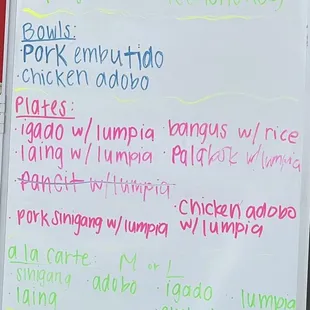 Bowls:
· Pork embutido
· chicken adobo
Plates:
· igado w/ lumpia · bangus w/ rice
· laing w/ lumpia · Palabok w/lumpia
· Pancit w/ lumpia
· Chicken adobo
w/ lumpia
· pork sinigang w/ lumpia
a la carte: M or L
· sinigang · adobo · igado · lumpia
· laing